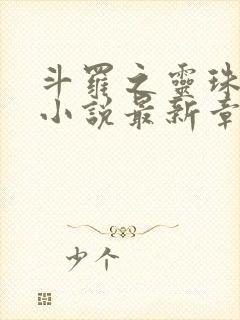 斗羅之靈珠
小説最新章
少个